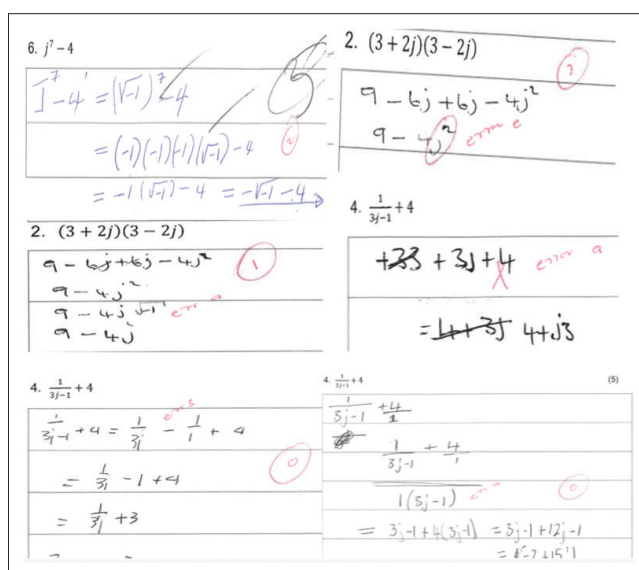 6. j⁷ – 4
I⁷-4 = (√-1)⁷-4
= (-1)(-1)(-1)(√-1)-4
= -1(√-1)-4 = -√-1-4
2
2. (3 + 2j)(3 – 2j)
3
9 - 6j + 6j - 4j²
9 - 4j² error e
2. (3 + 2j)(3 – 2j)
9 - 6j + 6j - 4j²
1
9 - 4j²
9 - 4j √-1
9 - 4j
4. 1/(3j–1) + 4
+33 + 3j + 4 error a
= 4+3j 4+j3
4. 1/(3j–1) + 4
1/(3j-1) + 4 = 1/3j - 1/1 + 4
0
= 1/3j - 1 + 4
= 1/3j + 3
4. 1/(3j–1) + 4 (5)
1/(3j-1) + 4/1
1/(3j-1) + 4/1
1(3j-1)
0
= 3j-1+4(3j-1) = 3j-1+12j-1